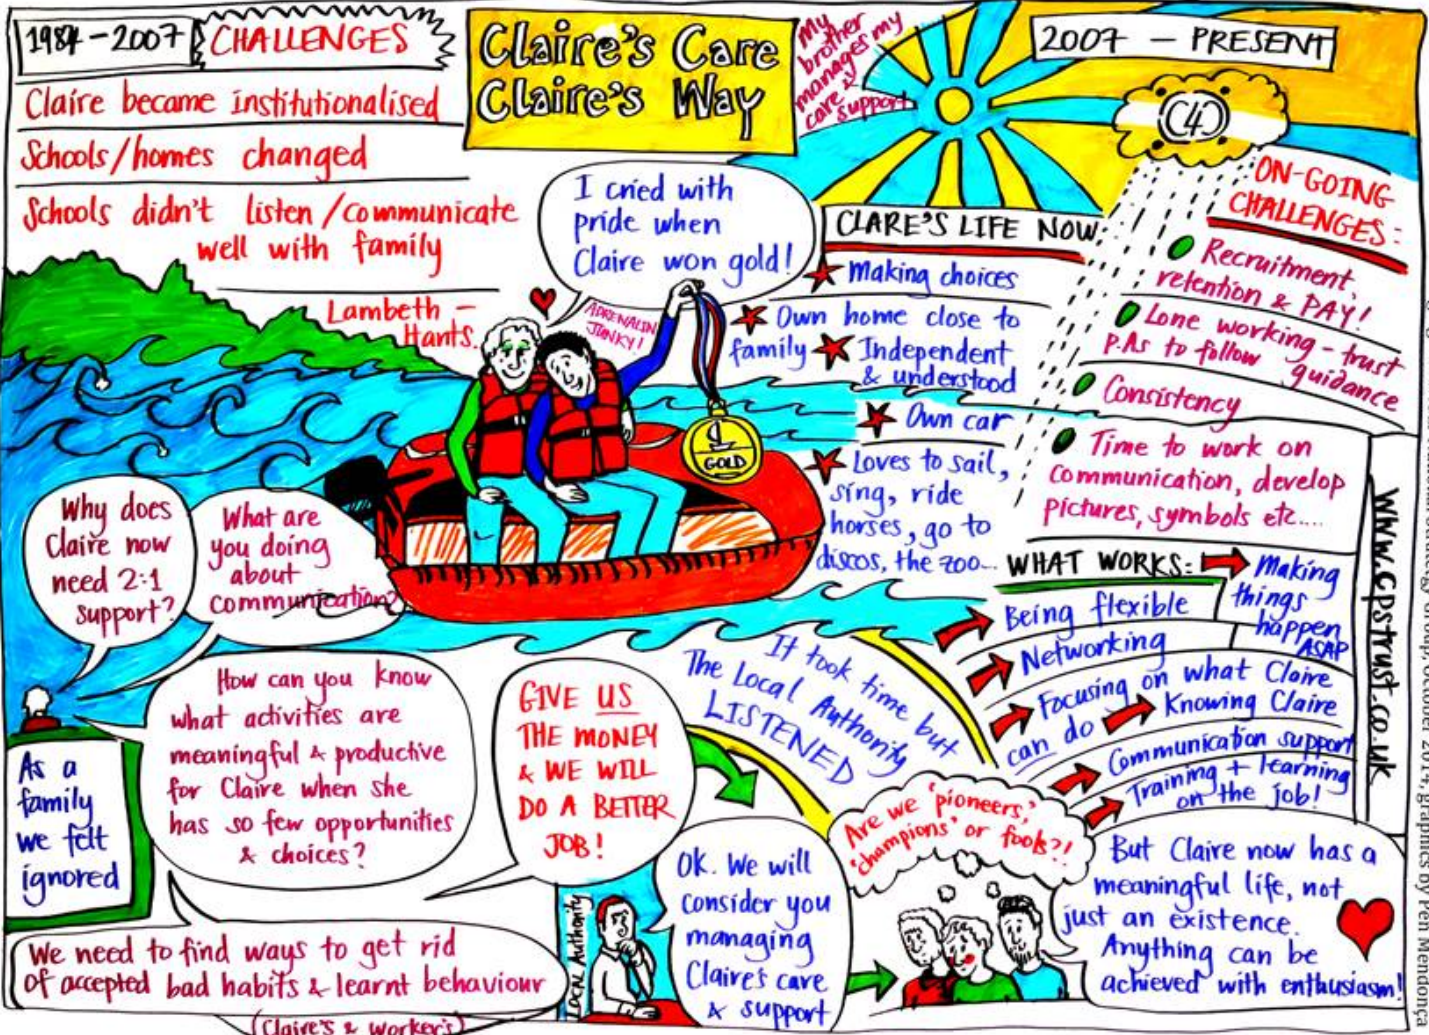 1984 - 2007
CHALLENGES
Claire became institutionalised
Schools/homes changed
Schools didn't listen/communicate
well with family
Lambeth -
Hants.
Claire's Care
Claire's Way
My
brother
manages my
care &
support
2007 - PRESENT
C4C
I cried with
pride when
Claire won gold!
ADRENALIN
JUNKY!
GOLD
CLARE'S LIFE NOW:
Making choices
Own home close to
family
Independent
& understood
Own car
Loves to sail,
sing, ride
horses, go to
discos, the zoo...
ON-GOING
CHALLENGES:
Recruitment,
retention & PAY!
Lone working - trust
P.As to follow
guidance
Consistency
Time to work on
communication, develop
pictures, symbols etc....
WHAT WORKS:
Making
things
happen
ASAP
Being flexible
Networking
Focusing on what Claire
can do
Knowing Claire
Communication support
Training + learning
on the job!
www.cpstrust.co.uk
Why does
Claire now
need 2:1
support?
What are
you doing
about
communication?
How can you know
what activities are
meaningful & productive
for Claire when she
has so few opportunities
& choices?
As a
family
we felt
ignored
We need to find ways to get rid
of accepted bad habits & learnt behaviour
(Claire's & worker's)
GIVE US
THE MONEY
& WE WILL
DO A BETTER
JOB!
It took time but
The Local Authority
LISTENED
LOCAL AUTHORITY
OK. We will
consider you
managing
Claire's care
& support
Are we 'pioneers,'
'champions' or fools?!
But Claire now has a
meaningful life, not
just an existence.
Anything can be
achieved with enthusiasm!
Group, October 2014, graphics by Pen Mendonça